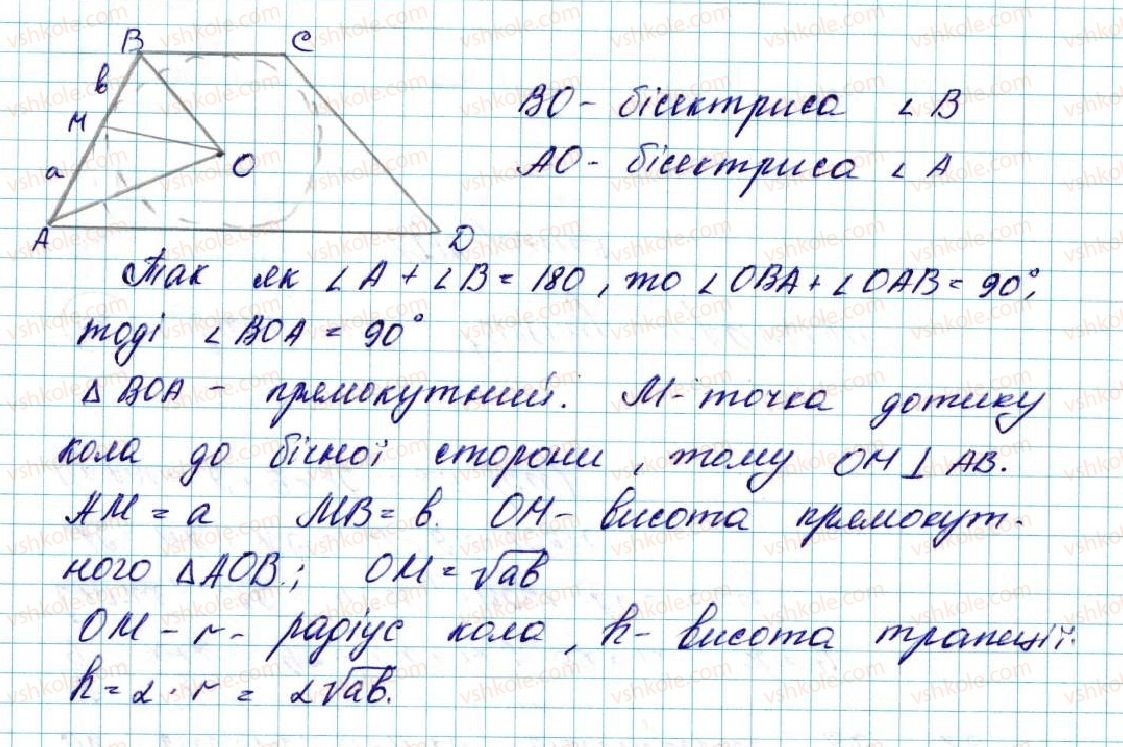 B C
в
М
а O
A D
BO - бісектриса ∠ B
AO - бісектриса ∠ A
Так як ∠ A + ∠ B = 180, то ∠ OBA + ∠ OAB = 90°,
тоді ∠ BOA = 90°
Δ BOA - прямокутний. М - точка дотику
кола до бічної сторони, тому OM ⊥ AB.
AM = a MB = в. OM - висота прямокут-
ного Δ AOB.; OM = √ав
OM - r - радіус кола, h - висота трапеції.
h = 2 · r = 2√ав.
vshkole.com